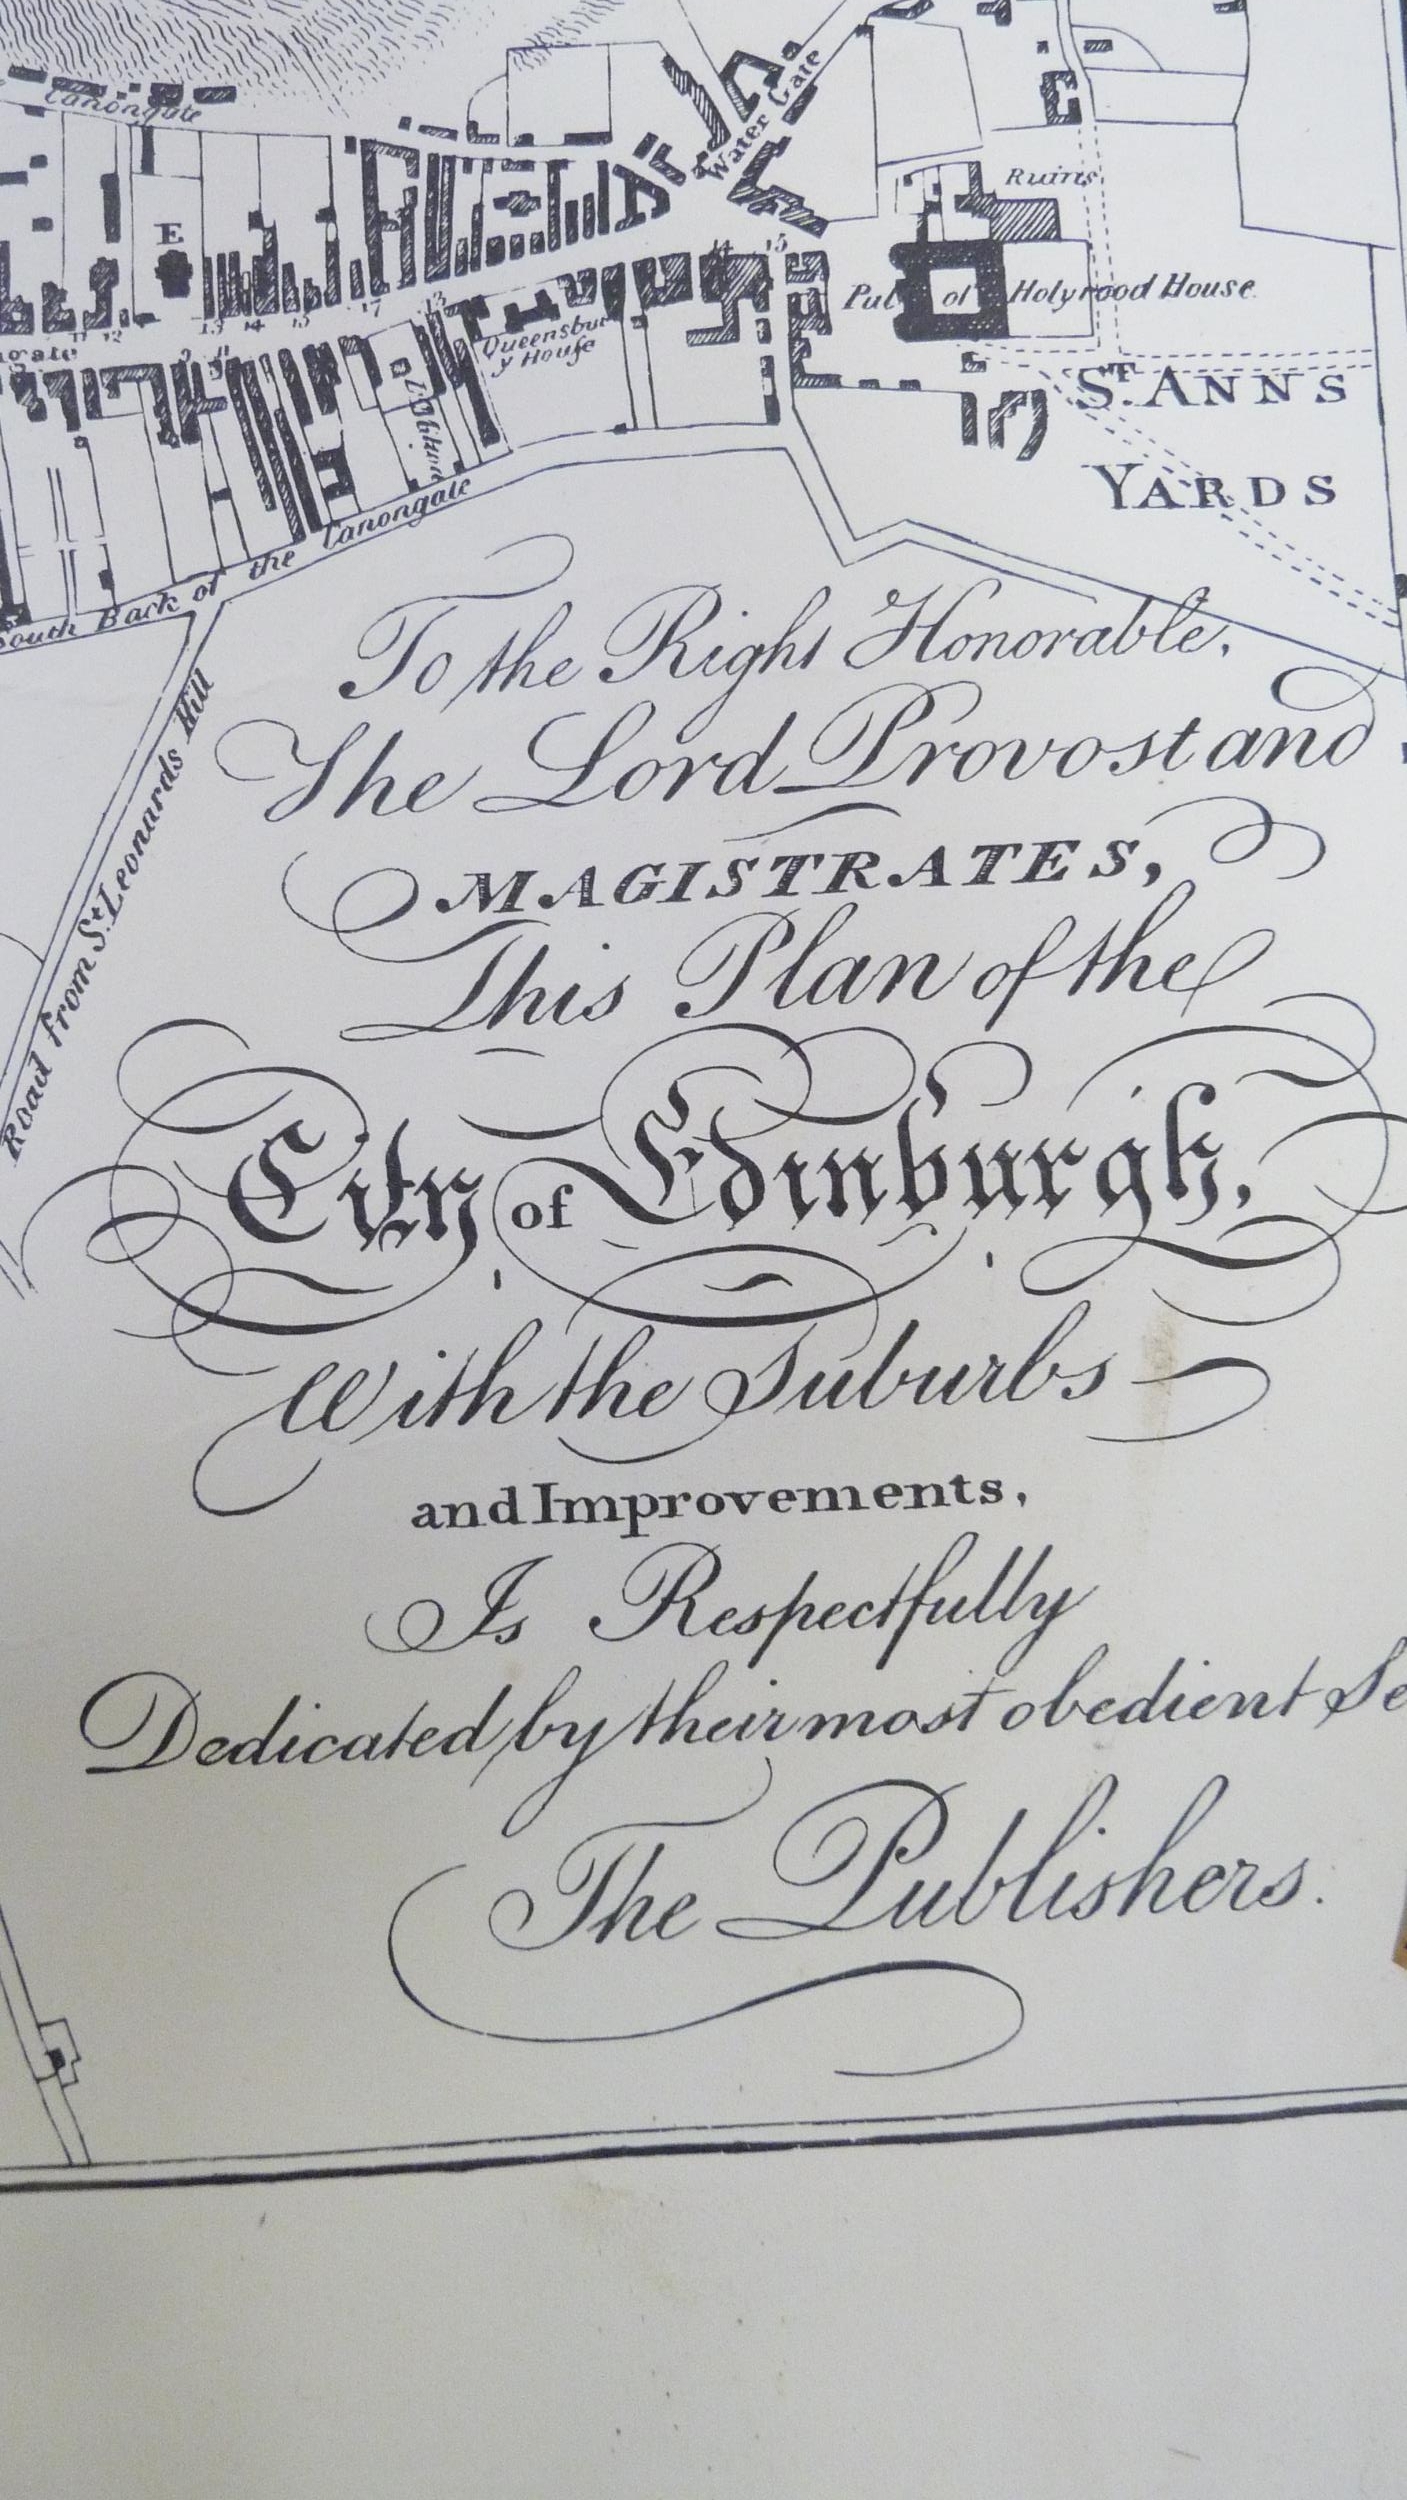 Canongate
Water Gate
E
Ruins
Pal of Holyrood House
14 15
11 12 13 14 15 17
Queensbur
y House
ST. ANNS
YARDS
South Back of the Canongate
Road from St. Leonards Hill
To the Right Honorable,
The Lord Provost and
MAGISTRATES,
This Plan of the
City of Edinburgh,
With the Suburbs
and Improvements,
Is Respectfully
Dedicated by their most obedient Se
The Publishers.